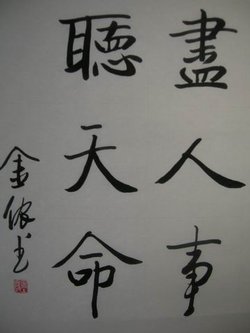 盡人事
聽天命
金依书